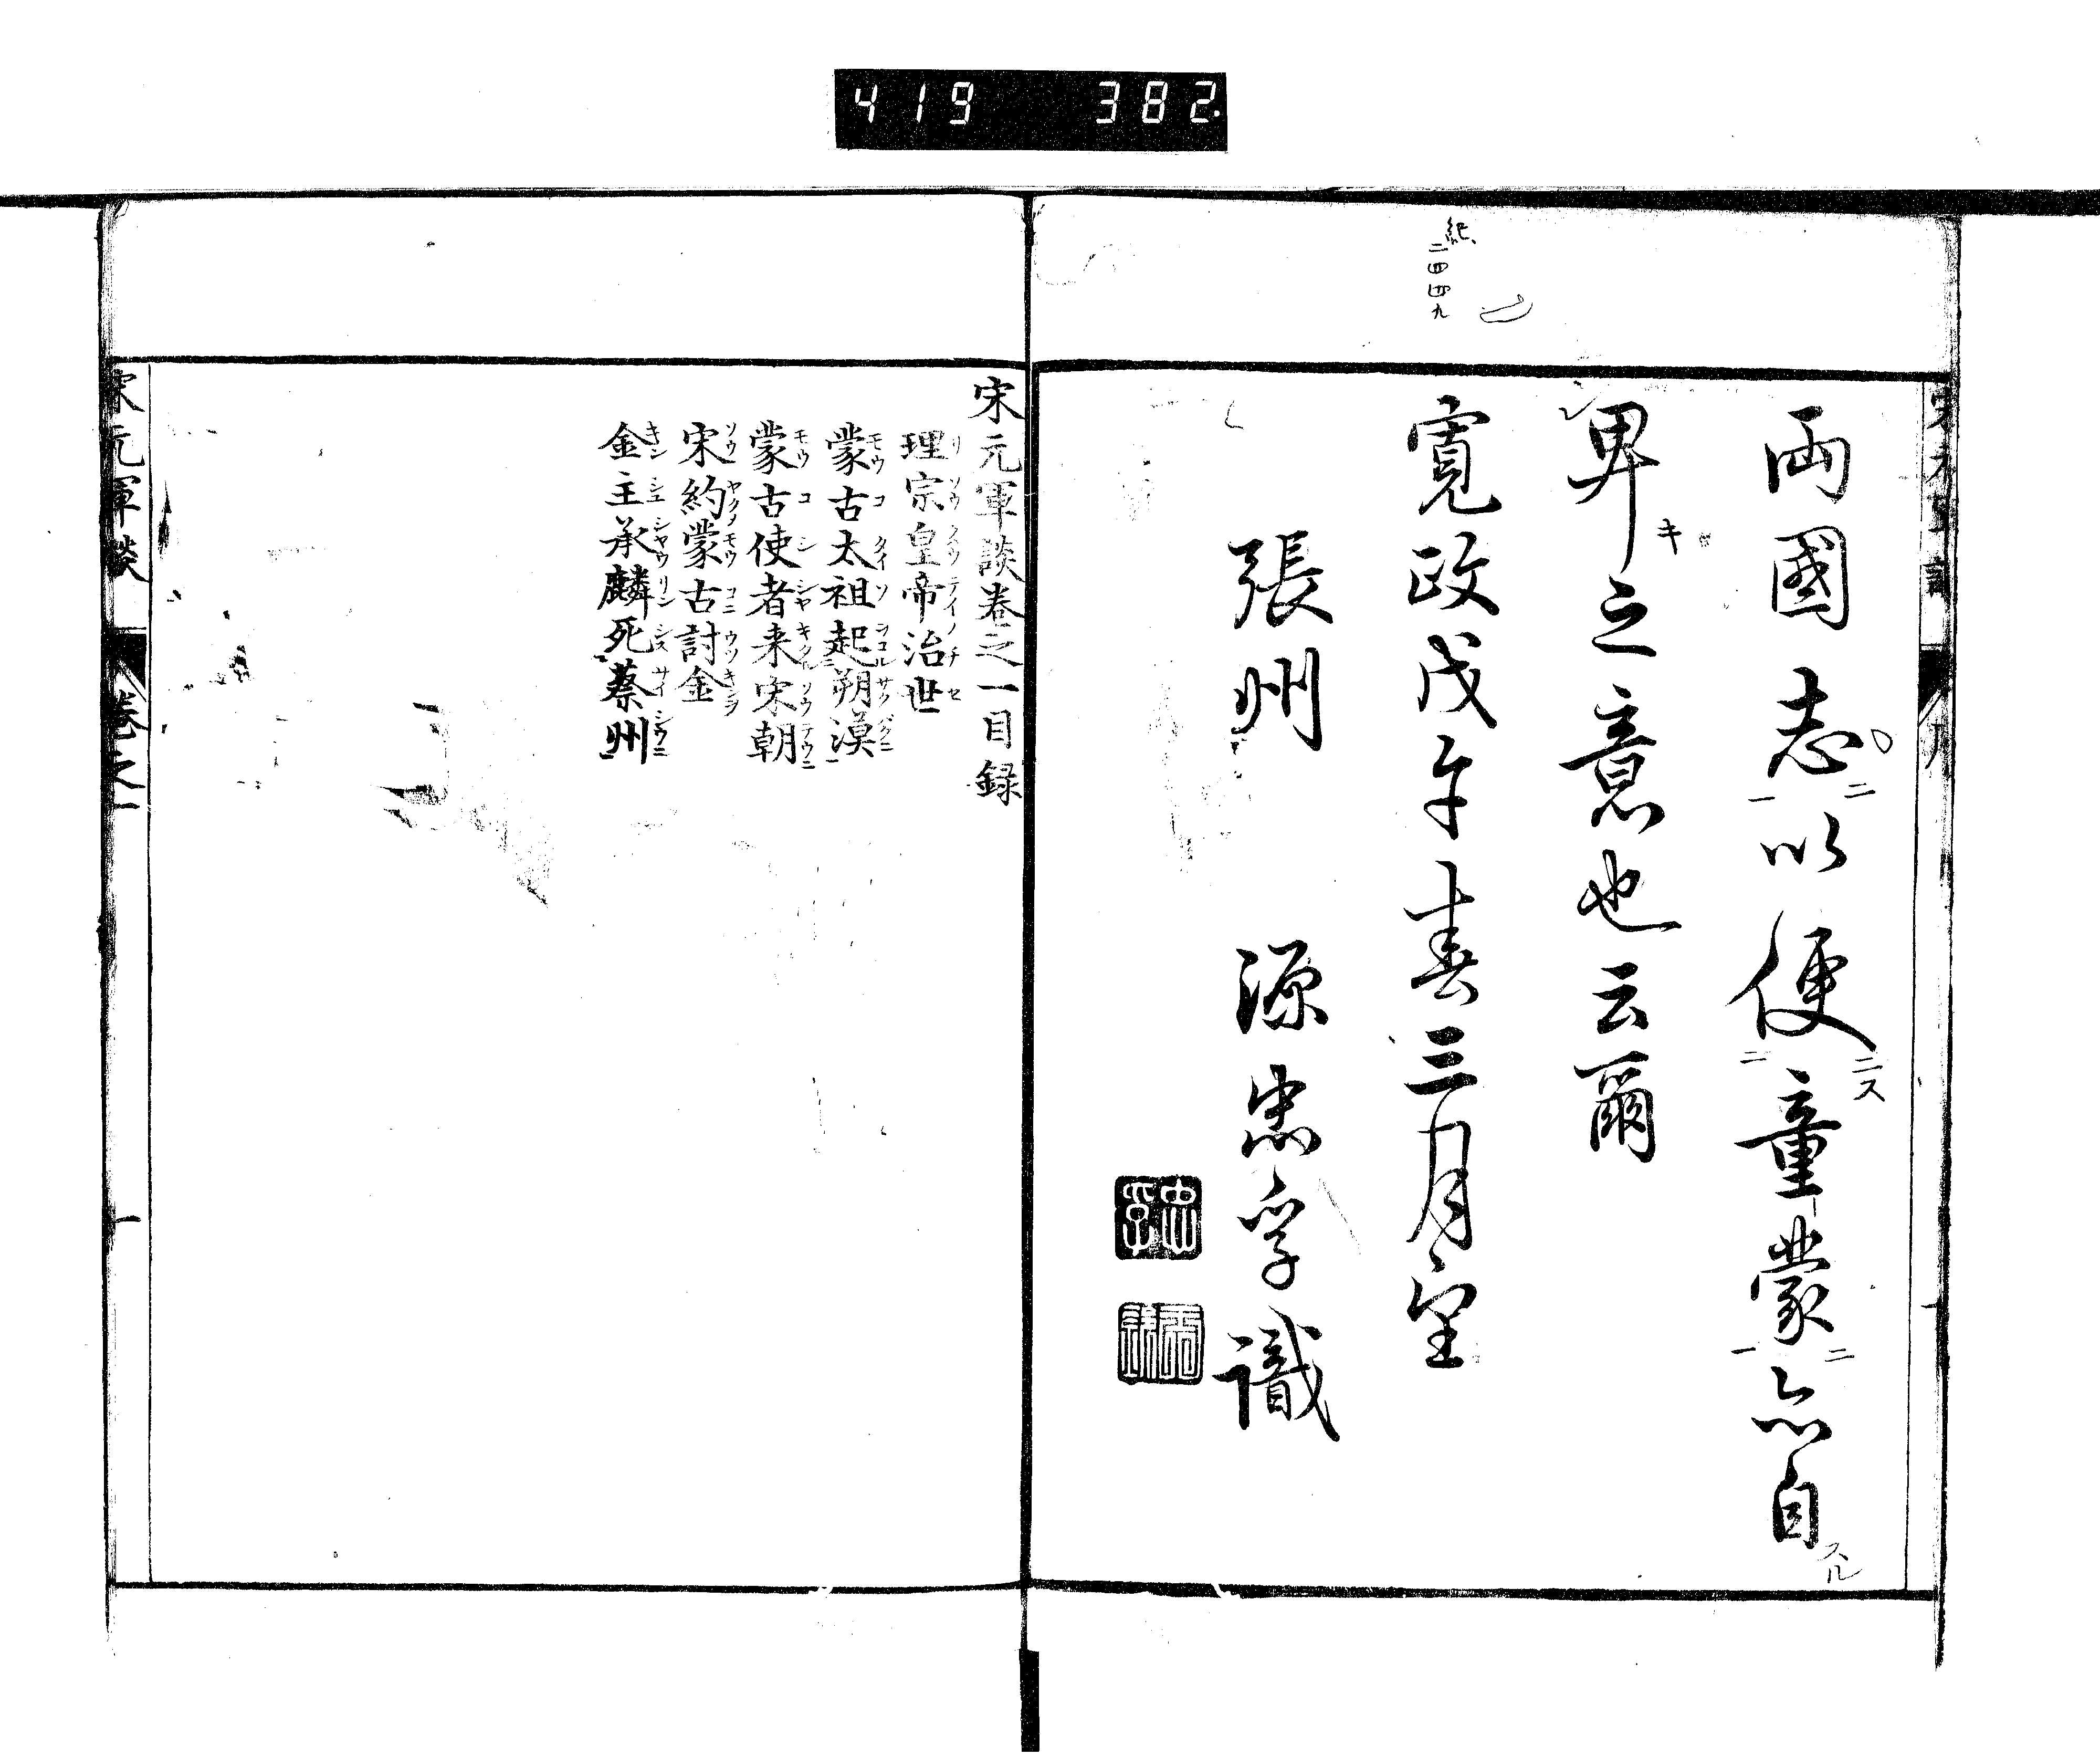 419 382
二四四九
両國志以便童蒙亦自
卑之意也云爾
寛政戊午春三月望
張州 源忠孚識
忠孚
宋元軍談卷之一目録
理宗皇帝治世
蒙古太祖起朔漠
蒙古使者来宋朝
宋約蒙古討金
金主承麟死蔡州
宋元軍談 卷之一 一